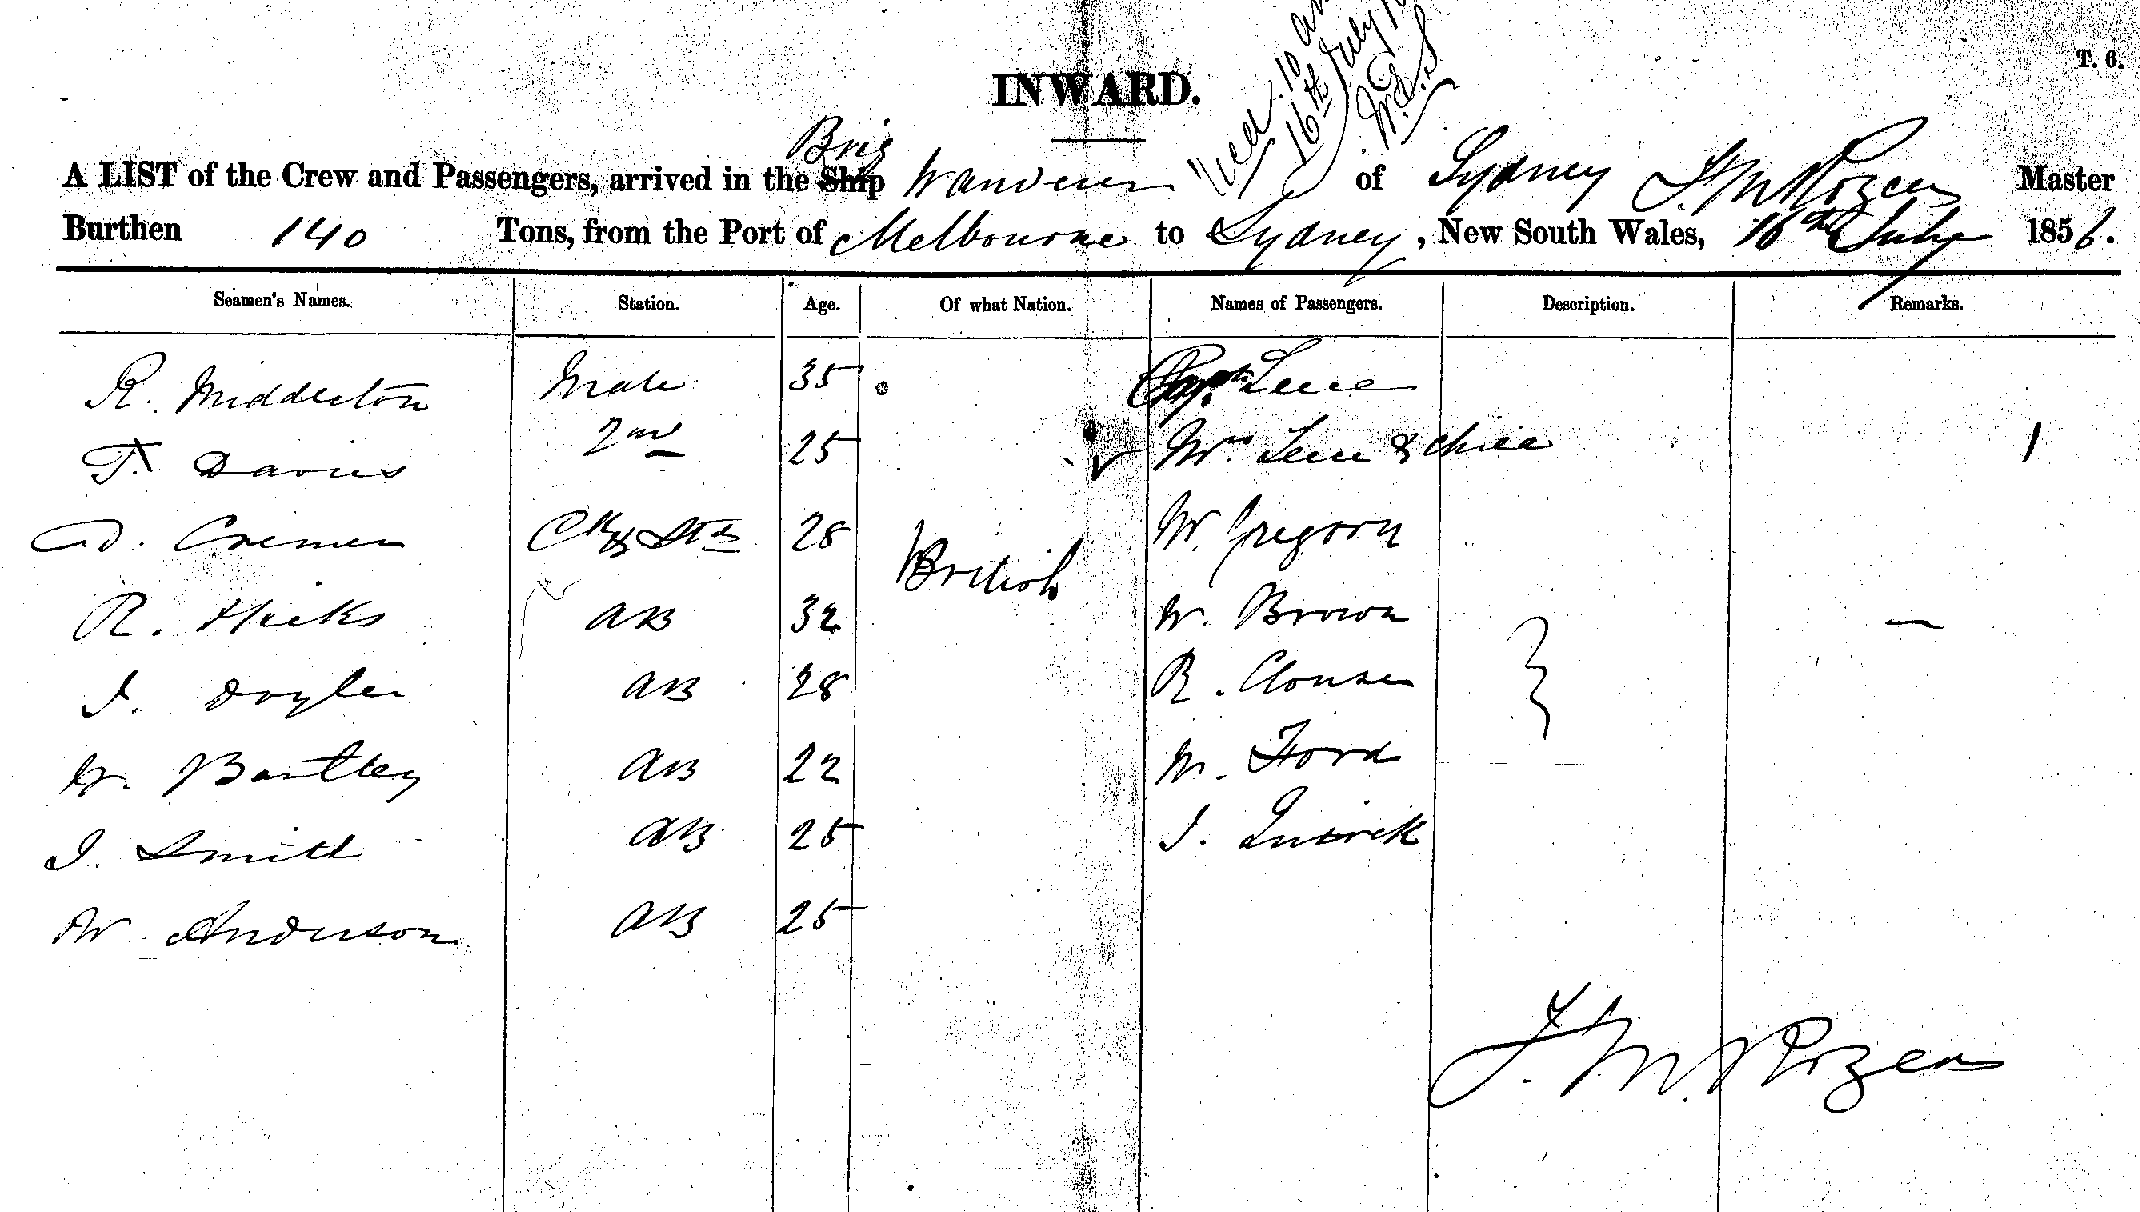 T. 6.
INWARD.
10 am
16th July
Brig
A LIST of the Crew and Passengers, arrived in the Ship Wanderer of Sydney F. M. Rozea Master
Burthen 140 Tons, from the Port of Melbourne to Sydney, New South Wales, 16th July 1856.
Seamen's Names. Station. Age. Of what Nation. Names of Passengers. Description. Remarks.
R. Middleton Mate 35 Capt.
F. Davies 2nd 25 Mrs & 1
D. 28 W. Gregory
British
R. Hicks AB 32 W. Brown
J. AB 28 R.
W. Bartley AB 22 M. Ford
J. Smith AB 25 J.
W. Anderson AB 25
F. M. Rozea